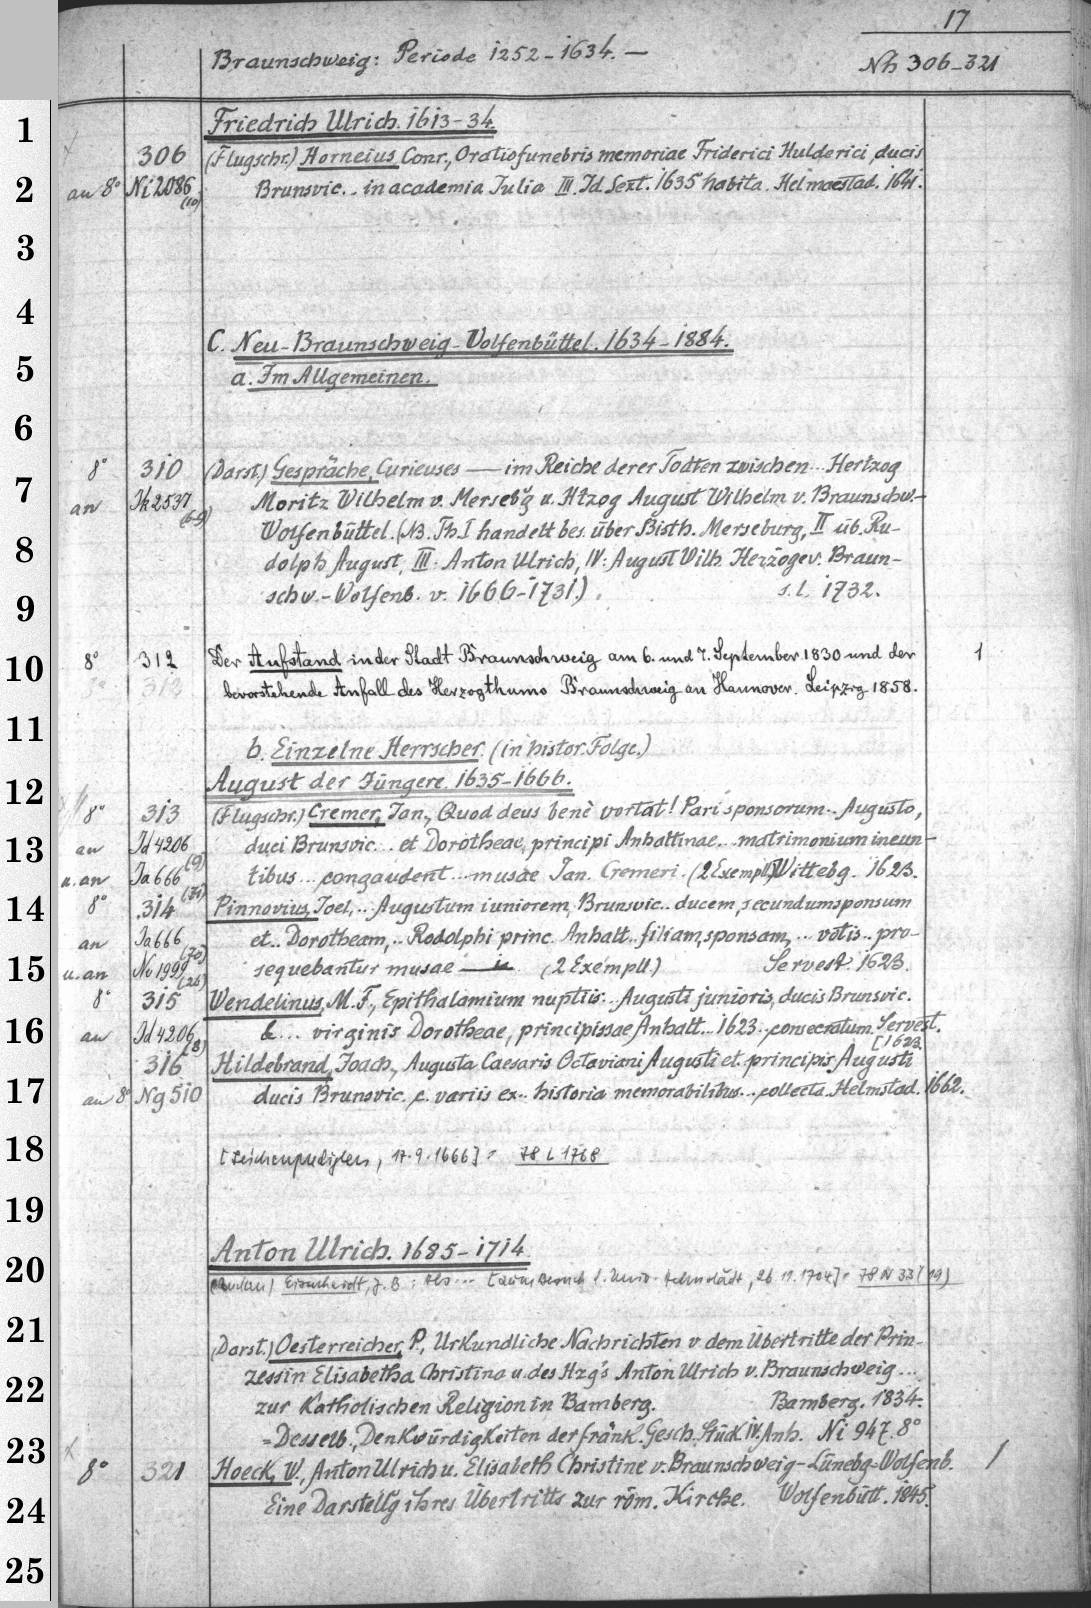 17
Braunschweig: Periode 1252-1634. —
Nh 306-321
1
Friedrich Ulrich. 1613-34.
306 (Flugschr.) Horneius Conr., Oratio funebris memoriae Friderici Hulderici, ducis
2
an 8° Ni 2086 (10) Brunsvic.. in academia Julia III. Id. Sext. 1635 habita. Helmaestad. 1641.
3
4
C. Neu-Braunschweig-Wolfenbüttel. 1634-1884.
5
a. Im Allgemeinen.
6
8° 310 (Darst.) Gespräche, Curieuses — im Reiche derer Todten zwischen... Hertzog
7
an Ik 2537 (6-9) Moritz Wilhelm v. Merseb'g u. Htzog August Wilhelm v. Braunschw.-
Wolfenbüttel. (NB. Th. I handelt bes. über Bisth. Merseburg, II üb. Ru-
8
dolph August, III: Anton Ulrich, IV: August Wilh. Herzoge v. Braun-
9
schw.-Wolfenb. v. 1666-1731.) s. l. 1732.
10
8° 312 Der Aufstand in der Stadt Braunschweig am 6. und 7. September 1830 und der 1
bevorstehende Anfall des Herzogthums Braunschweig an Hannover. Leipzig 1858.
11
b. Einzelne Herrscher. (in histor. Folge.)
12
August der Jüngere. 1635-1666.
8° 313 (Flugschr.) Cremer, Jan., Quod deus benè vortat! Pari sponsorum.. Augusto,
13
an Id 4206 (9) duci Brunsvic... et Dorotheae, principi Anhaltinae... matrimonium ineun-
u. an Ja 666 (71) tibus... congaudent... musae Jan. Cremeri. (2 Exempll.) Wittebg. 1623.
14
8° 314 Pinnovius, Joel,.. Augustum iuniorem, Brunsvic.. ducem, secundum sponsum
an Ja 666 (70) et.. Dorotheam,.. Rodolphi princ. Anhalt. filiam, sponsam,... votis.. pro-
15
u. an Nv 1999 (26) sequebantur musae — (2 Exempll.) Servest. 1623.
8° 315 Wendelinus, M. F., Epithalamium nuptiis.. Augusti junioris, ducis Brunsvic.
16
an Id 4206 (8) &... virginis Dorotheae, principissae Anhalt... 1623.. consecratum. Servest.
[1623.
316 Hildebrand, Joach., Augusta Caesaris Octaviani Augusti et. principis Augusti
17
an 8° Ng 510 ducis Brunsvic. c. variis ex.. historia memorabilibus... collecta. Helmstad. 1662.
18
[Leichenpredigten, 17.9.1666] = 78 L 1768
19
20
Anton Ulrich. 1685-1714.
Eisenhardt, J. B.: Als... [zum Besuch d. Univ. Helmstädt, 26.11.1704] = 78 N 33 (19)
21
(Darst.) Oesterreicher, P., Urkundliche Nachrichten v dem Übertritte der Prin-
22
zessin Elisabetha Christina u. des Hzg's Anton Ulrich v. Braunschweig...
zur Katholischen Religion in Bamberg. Bamberg. 1834.
23
=Desselb., Denkwürdigkeiten der fränk. Gesch. Stück IV. Anh. Ni 947. 8°
8° 321 Hoeck, W., Anton Ulrich u. Elisabeth Christine v. Braunschweig-Lünebg-Wolfenb. 1
24
Eine Darstell'g ihres Übertritts zur röm. Kirche. Wolfenbütt. 1845.
25